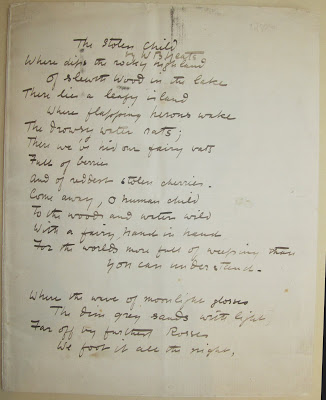 The Stolen Child
by W B Yeats
Where dips the rocky highland
Of Sleuth Wood in the lake
There lies a leafy island
Where flapping herons wake
The drowsy water rats;
There we've hid our fairy vats
Full of berries
And of reddest stolen cherries.
Come away, O human child
To the woods and water wild
With a fairy hand in hand
For the worlds more full of weeping than
you can understand.
Where the wave of moonlight glosses
The dim grey sands with light,
Far off by furthest Rosses
We foot it all the night,